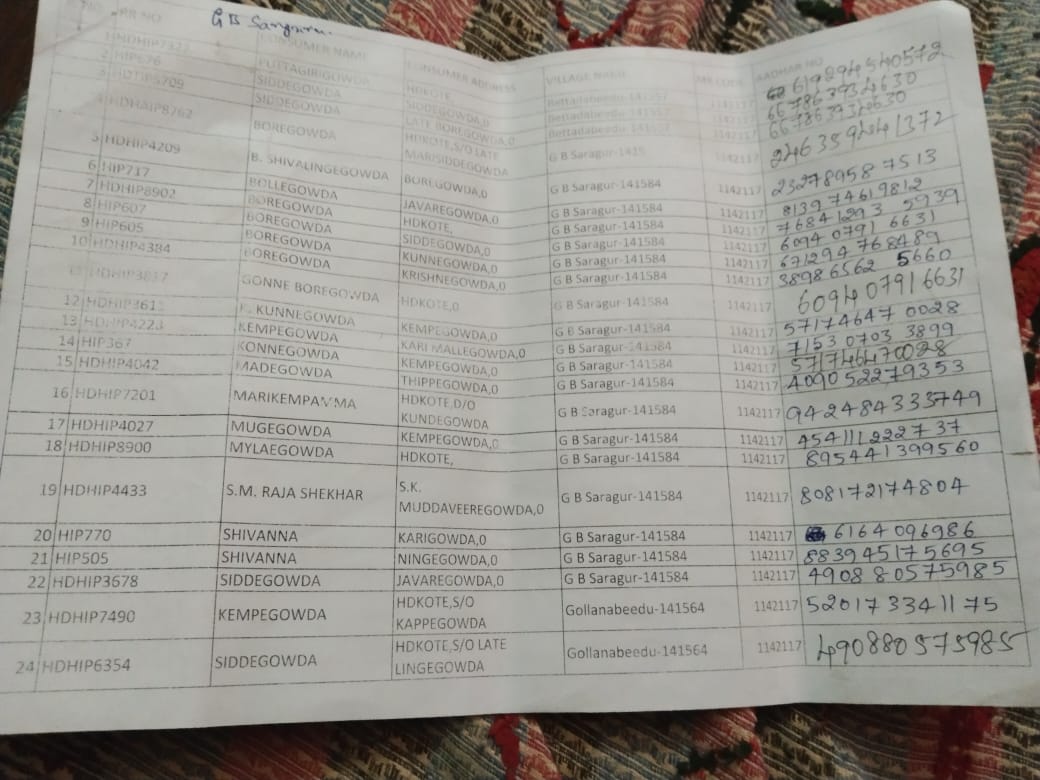 G B Saragur
RR NO CONSUMER NAME CONSUMER ADDRESS VILLAGE NAME MR CODE AADHAR NO
PUTTAGIRIGOWDA HDKOTE, Bettadabeedu 1142117 619294540572
2 HIP676 SIDDEGOWDA SIDDEGOWDA,0 Bettadabeedu 1142117 667863934630
3 SIDDEGOWDA LATE BOREGOWDA,0 Bettadabeedu 1142117
4 HDHAIP8762 BOREGOWDA HDKOTE,S/O LATE MARISIDDEGOWDA G B Saragur 1142117
5 HDHIP4209 B. SHIVALINGEGOWDA BOREGOWDA,0 G B Saragur-141584 1142117 23278958 7513
6 HIP717 BOLLEGOWDA JAVAREGOWDA,0 G B Saragur-141584 1142117 8139 74619812
7 HDHIP8902 BOREGOWDA HDKOTE, G B Saragur-141584 1142117 76841293 5939
8 HIP607 BOREGOWDA SIDDEGOWDA,0 G B Saragur-141584 1142117 6094 0791 6631
9 HIP605 BOREGOWDA KUNNEGOWDA,0 G B Saragur-141584 1142117 671294 768489
10 HDHIP4384 BOREGOWDA KRISHNEGOWDA,0 G B Saragur-141584 1142117 38986562 5660
GONNE BOREGOWDA HDKOTE,0 G B Saragur-141584 1142117 609407916631
12 KUNNEGOWDA KEMPEGOWDA,0 G B Saragur-141584 1142117 57174647 0028
13 HDHIP4223 KEMPEGOWDA KARI MALLEGOWDA,0 G B Saragur-141584 1142117 71530703 3899
14 HIP367 KONNEGOWDA KEMPEGOWDA,0 G B Saragur-141584 1142117 571746470028
15 HDHIP4042 MADEGOWDA THIPPEGOWDA,0 G B Saragur-141584 1142117 409052279353
16 HDHIP7201 MARIKEMPAMMA HDKOTE,D/O KUNDEGOWDA G B Saragur-141584 1142117 942484333749
17 HDHIP4027 MUGEGOWDA KEMPEGOWDA,0 G B Saragur-141584 1142117 454111222737
18 HDHIP8900 MYLAEGOWDA HDKOTE, G B Saragur-141584 1142117 895441399560
19 HDHIP4433 S.M. RAJA SHEKHAR S.K. MUDDAVEEREGOWDA,0 G B Saragur-141584 1142117 808172174804
20 HIP770 SHIVANNA KARIGOWDA,0 G B Saragur-141584 1142117 6164 096986
21 HIP505 SHIVANNA NINGEGOWDA,0 G B Saragur-141584 1142117 883945175695
22 HDHIP3678 SIDDEGOWDA JAVAREGOWDA,0 G B Saragur-141584 1142117 490880575985
23 HDHIP7490 KEMPEGOWDA HDKOTE,S/O KAPPEGOWDA Gollanabeedu-141564 1142117 520173341175
24 HDHIP6354 SIDDEGOWDA HDKOTE,S/O LATE LINGEGOWDA Gollanabeedu-141564 1142117 490880575985